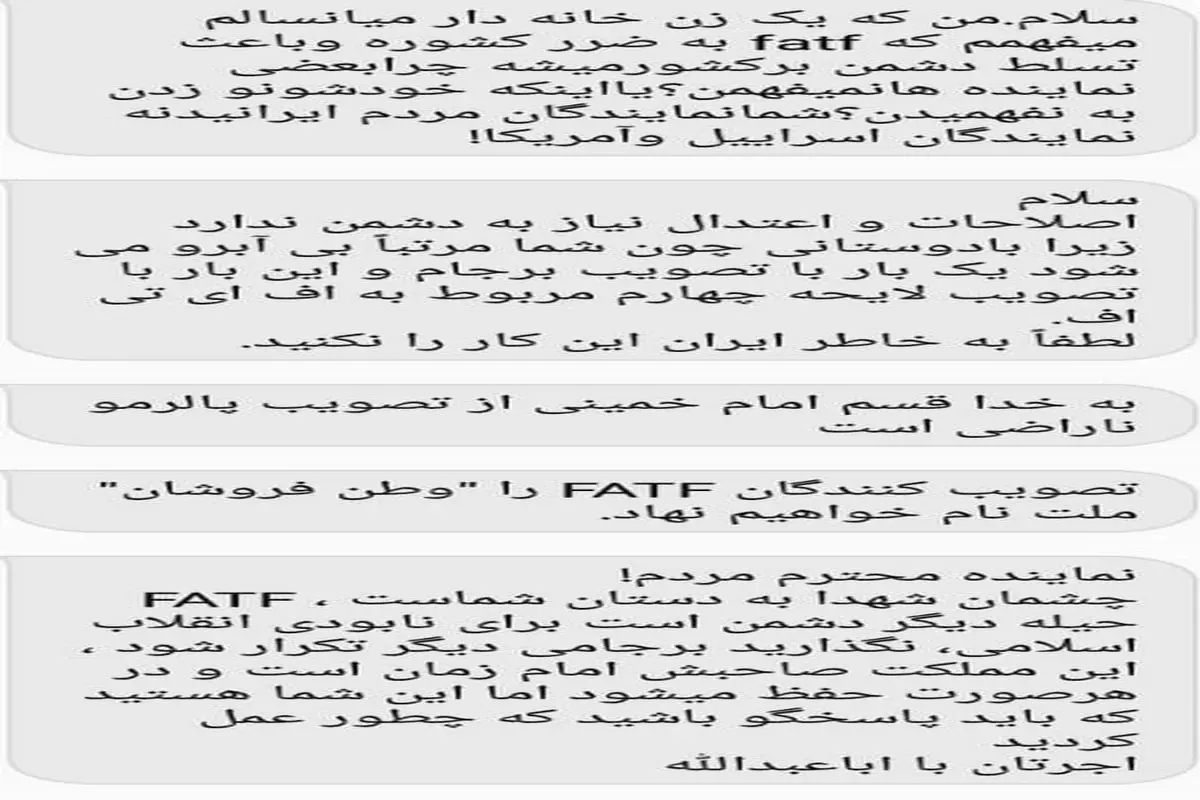 سلام.من که یک زن خانه دار میانسالم
میفهمم که fatf به ضرر کشوره وباعث
تسلط دشمن برکشورمیشه چرابعضی
نماینده هانمیفهمن؟یااینکه خودشونو زدن
به نفهمیدن؟شمانمایندگان مردم ایرانیدنه
نمایندگان اسراییل وآمریکا!
سلام
اصلاحات و اعتدال نیاز به دشمن ندارد
زیرا بادوستانی چون شما مرتباً بی آبرو می
شود یک بار با تصویب برجام و این بار با
تصویب لایحه چهارم مربوط به اف ای تی
اف.
لطفاً به خاطر ایران این کار را نکنید.
به خدا قسم امام خمینی از تصویب پالرمو
ناراضی است
تصویب کنندگان FATF را "وطن فروشان"
ملت نام خواهیم نهاد.
نماینده محترم مردم!
چشمان شهدا به دستان شماست ، FATF
حیله دیگر دشمن است برای نابودی انقلاب
اسلامی، نگذارید برجامی دیگر تکرار شود ،
این مملکت صاحبش امام زمان است و در
هرصورت حفظ میشود اما این شما هستید
که باید پاسخگو باشید که چطور عمل
کردید
اجرتان با اباعبدالله